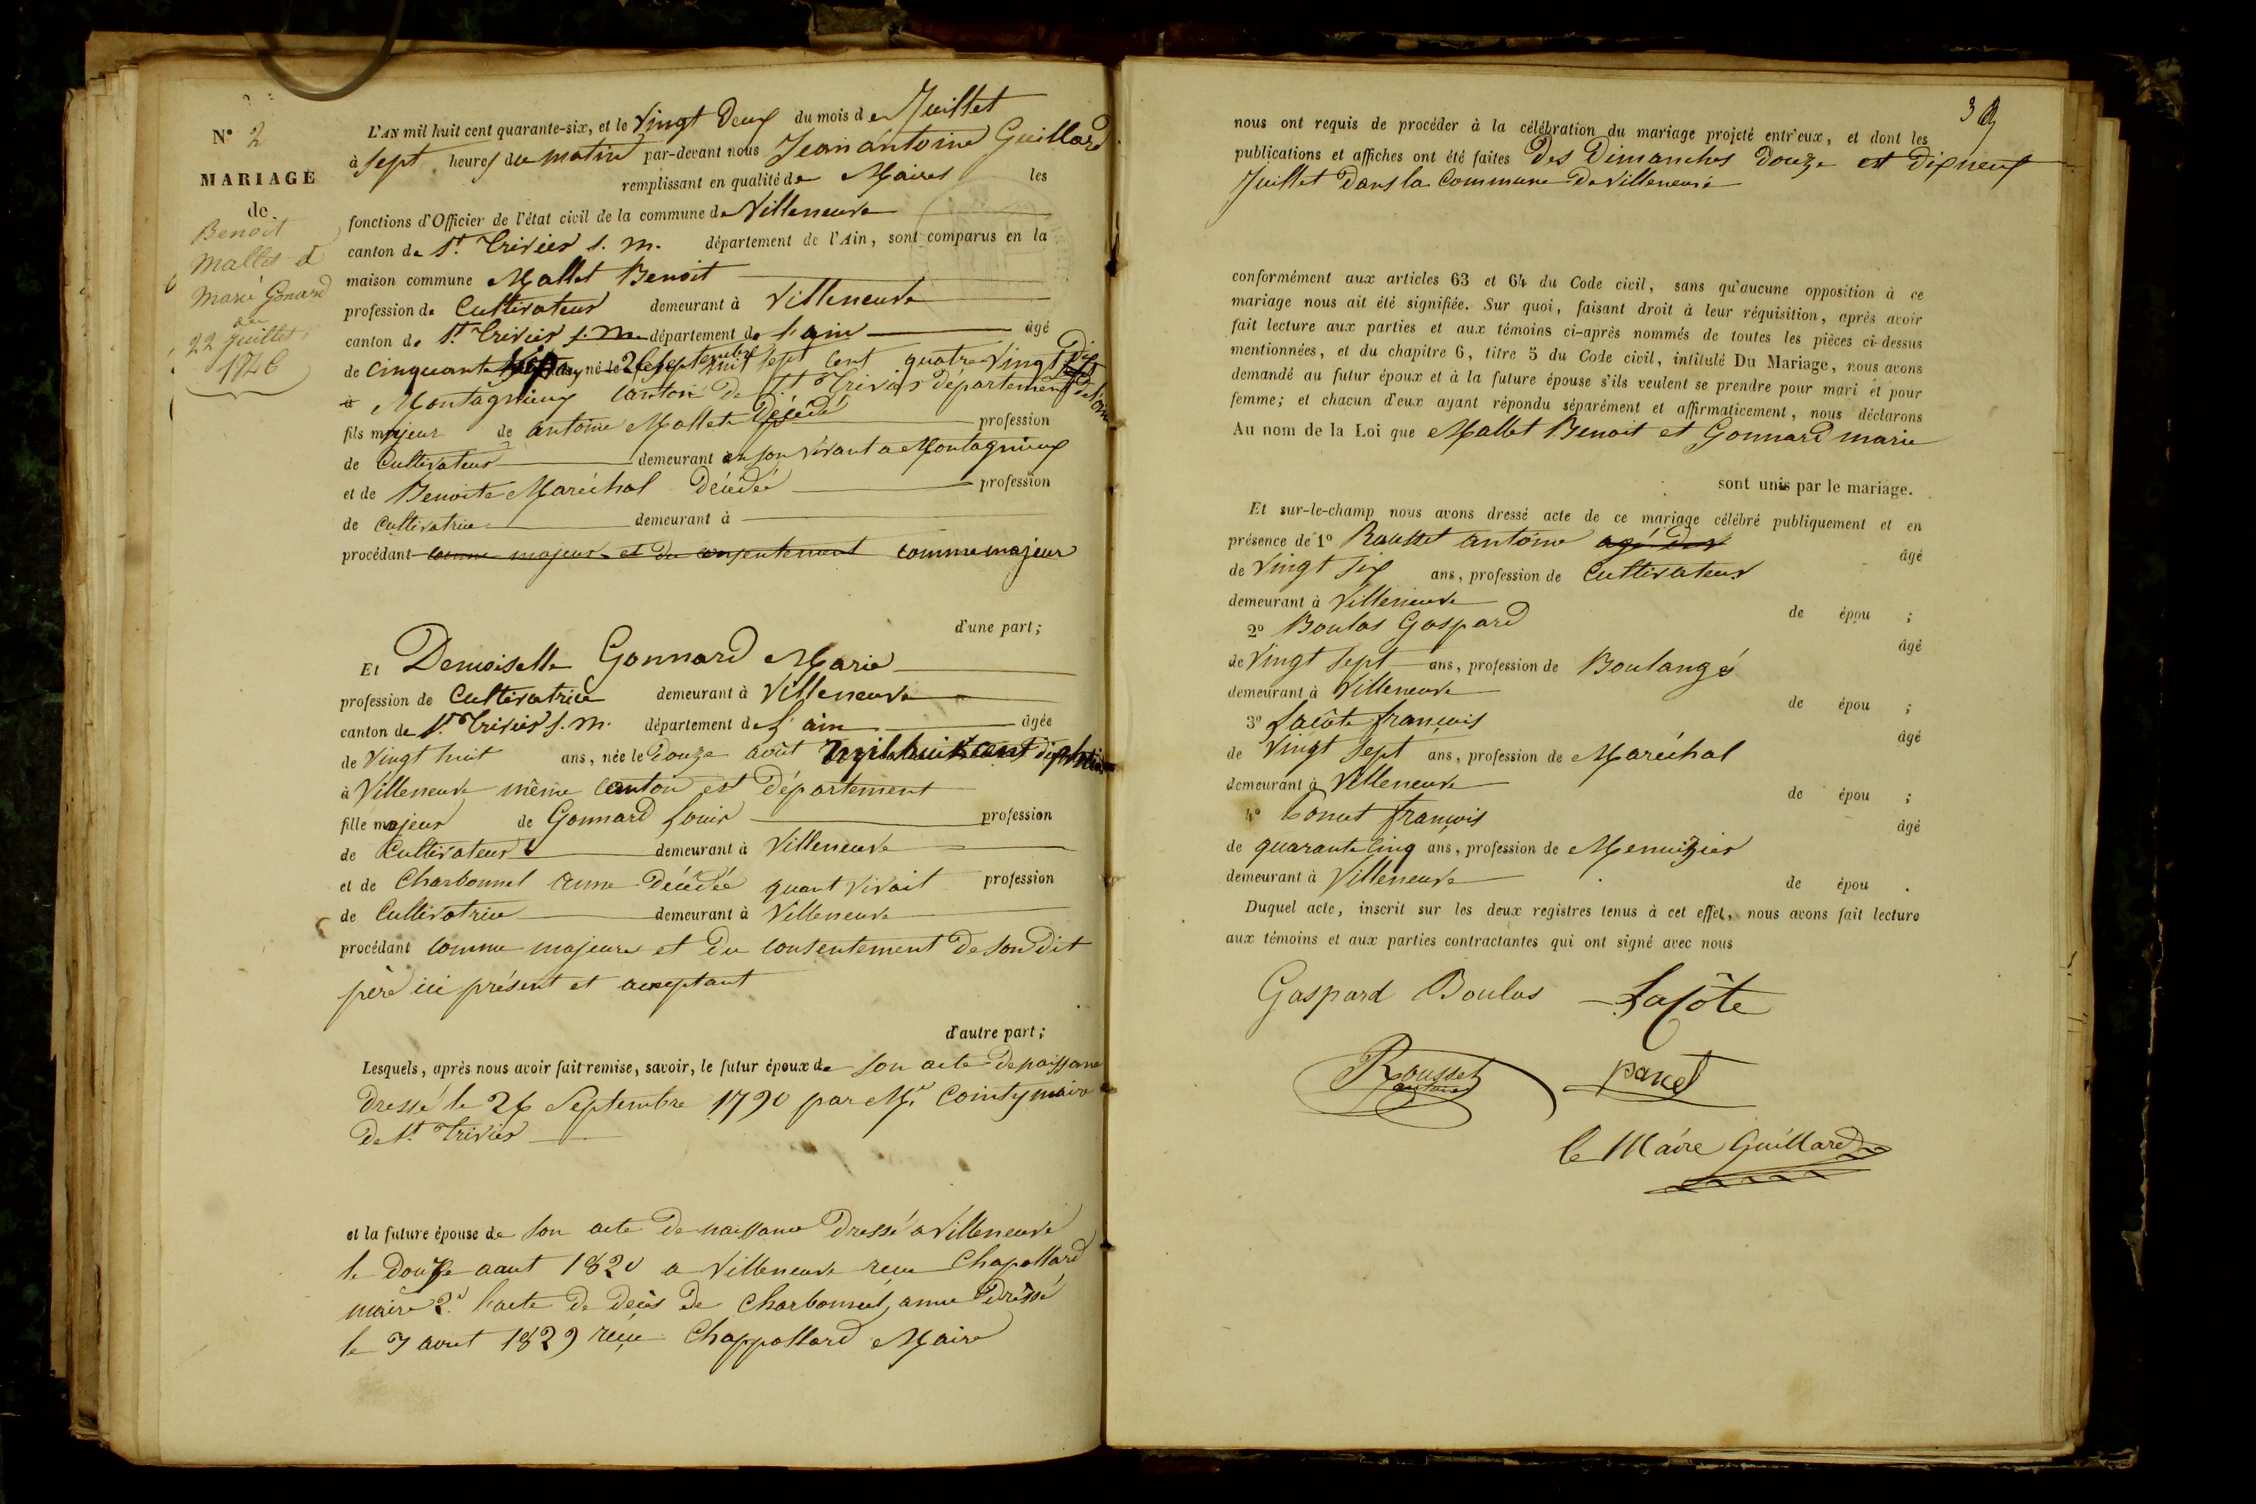 N° 2
MARIAGE
de
Benoit
Mallet et
Marie Gonard
du
22 Juillet
1746
L'AN mil huit cent quarante-six, et le Vingt Deux du mois de Juillet
à Sept heures du matin par-devant nous Jean antoine Guillard
remplissant en qualité de Maire les
fonctions d'Officier de l'état civil de la commune de Villeneuve
canton de St. Trivier s. m. département de l'Ain, sont comparus en la
maison commune Mallet Benoit
profession de Cultivateur demeurant à Villeneuve
canton de St. Trivier s. m. département de l'ain âgé
de cinquante ans, né le 26 Septembre mil sept cent quatre Vingt Dix
à Montagnieux canton de St Trivier Département de l'ain
fils majeur de antoine Mallet Décédé profession
de Cultivateur demeurant en son vivant a Montagnieux
et de Benoite Maréchal Décédée profession
de Cultivatrice demeurant à
procédant comme majeur et du consentement comme majeur
d'une part;
Et Demoiselle Gonnard Marie
profession de Cultivatrice demeurant à Villeneuve
canton de St. Trivier s. m. département de l'ain âgée
de Vingt huit ans, née le Douze août mil huit cent
à Villeneuve même canton et Département
fille majeur de Gonnard Louis profession
de Cultivateur demeurant à Villeneuve
et de Charbonnel anne Décédée quant vivait profession
de Cultivatrice demeurant à Villeneuve
procédant comme majeure et du consentement de son dit
père ici présent et acceptant
d'autre part;
Lesquels, après nous avoir fait remise, savoir, le futur époux de son acte de naissance
Dressé le 26 Septembre 1790 par Mr. Cointy maire
De St. Trivier
et la future épouse de son acte de naissance Dressé a Villeneuve
le Douze aout 1820 a Villeneuve reçu Chapollard
maire 2.d l'acte de décès de Charbonnel, anne Dressé
le 7 aout 1829 reçu Chappollard Maire
39
nous ont requis de procéder à la célébration du mariage projeté entr'eux, et dont les
publications et affiches ont été faites Des Dimanches Douze et Dixneuf
Juillet Dans la Commune De Villeneuve
conformément aux articles 63 et 64 du Code civil, sans qu'aucune opposition à ce
mariage nous ait été signifiée. Sur quoi, faisant droit à leur réquisition, après avoir
fait lecture aux parties et aux témoins ci-après nommés de toutes les pièces ci-dessus
mentionnées, et du chapitre 6, titre 5 du Code civil, intitulé Du Mariage, nous avons
demandé au futur époux et à la future épouse s'ils veulent se prendre pour mari et pour
femme; et chacun d'eux ayant répondu séparément et affirmaticement, nous déclarons
Au nom de la Loi que Mallet Benoit et Gonnard marie
sont unis par le mariage.
Et sur-le-champ nous avons dressé acte de ce mariage célébré publiquement et en
présence de 1° Rousset antoine agé de âgé
de Vingt Six ans, profession de Cultivateur
demeurant à Villeneuve de épou ;
2° Boulas Gaspard âgé
de Vingt Sept ans, profession de Boulangé
demeurant à Villeneuve de épou ;
3° Lacôte françois âgé
de Vingt Sept ans, profession de Maréchal
demeurant à Villeneuve de épou ;
4° françois âgé
de quarante cinq ans, profession de Menuizier
demeurant à Villeneuve de épou .
Duquel acte, inscrit sur les deux registres tenus à cet effet, nous avons fait lecture
aux témoins et aux parties contractantes qui ont signé avec nous
Gaspard Boulas Lacôte
Rousset antoine
le Maire Guillard